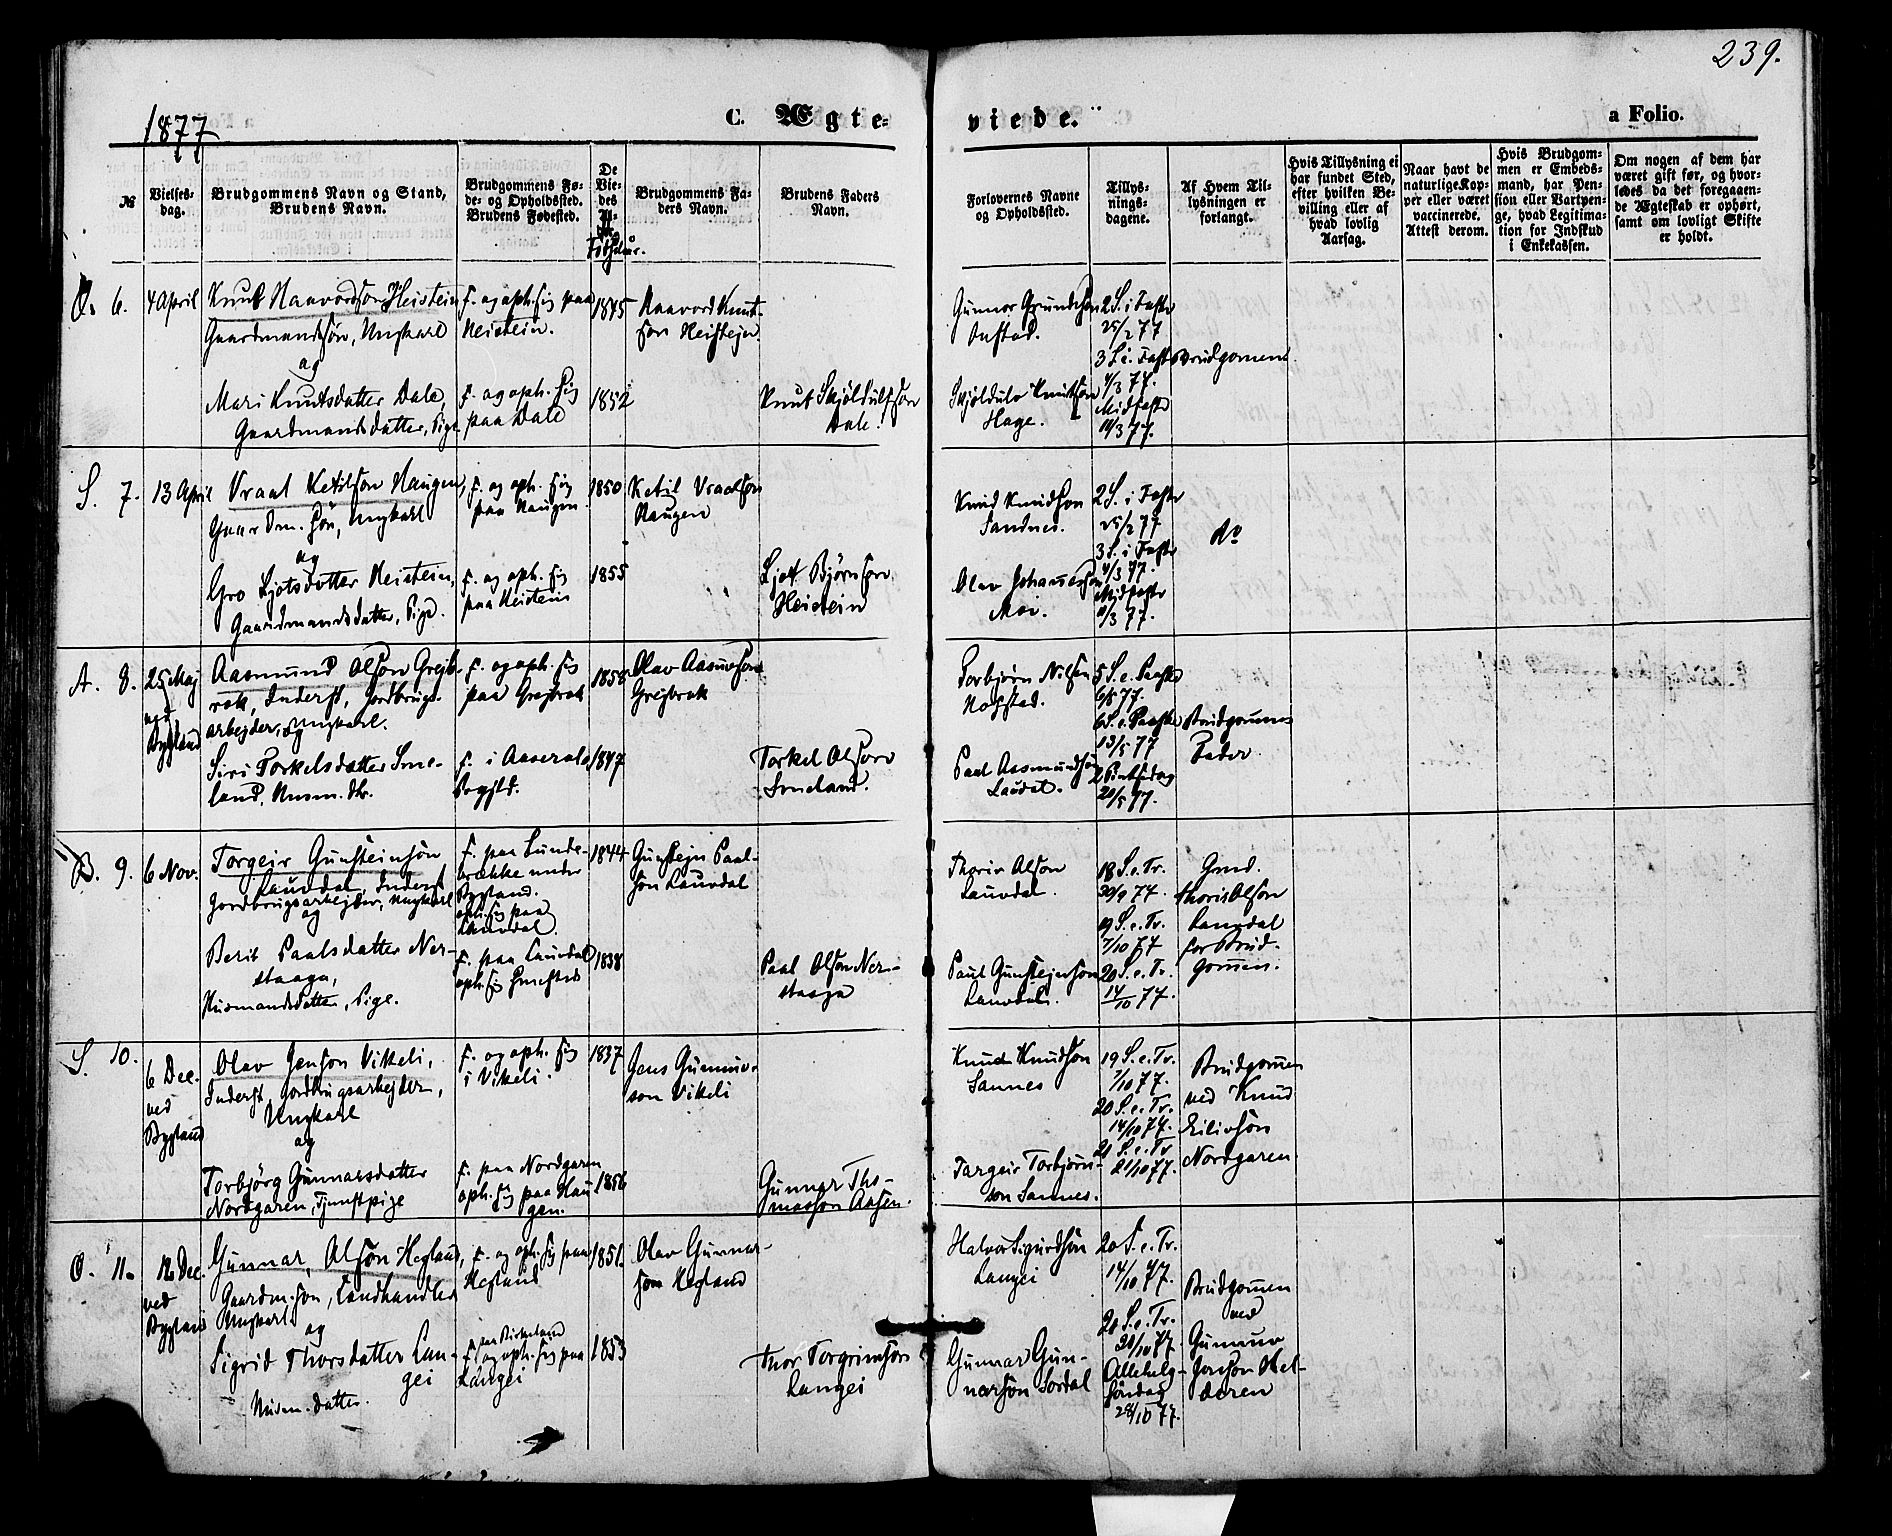 239.
1877
C. Ægte-
viede.
a Folio.
№
Vielses-
dag.
Brudgommens Navn og Stand,
Brudens Navn.
Brudgommens Fø-
de- og Opholdssted.
Brudens Fødested.
De
Vie-
des
Fødselsaar.
Brudgommens Fa-
ders Navn.
Brudens Faders
Navn.
Forlovernes Navne
og Opholdssted.
Tillys-
nings-
dagene.
Af Hvem Til-
lysningen er
forlangt.
Hvis Tillysning ei
har fundet Sted,
efter hvilken Be-
villing eller af
hvad lovlig
Aarsag.
Naar havt de
naturlige Kop-
per eller været
vaccinerede.
Attest derom.
Hvis Brudgom-
men er Embeds-
mand, har Pen-
sion eller Vartpen-
ge, hvad Legitima-
tion for Indskud
i Enkekassen.
Om nogen af dem har
været gift før, og hvor-
ledes da det foregaaen-
de Ægteskab er ophørt,
samt om lovligt Skifte
er holdt.
Ø. 6.
4 April
Knut Haavordson Heistein
Gaardmandssøn, Ungkarl
og
Mari Knutsdatter Dale,
Gaardmandsdatter, Pige
F. og oph. sig paa
Heistein.
F. og oph. sig
paa Dale
1845
1852
Haavord Knut-
son Heistejn.
Knut Skjöldulfson
Dale.
Gunnar Grundeson
Austad.
Skjöldulv Knutson
Hage.
2 S. i Faste
25/2 77
3 S. i Faste
4/3 77.
Midfaste
11/3 77.
Brudgomen
S. 7.
13 April
Vraal Ketilson Haugen,
Gaardm. søn, Ungkarl
og
Gro Ljotsdatter Heistein,
Gaardmandsdatter, Pige.
F. og oph. sig
paa Haugen
F. og oph. sig
paa Heistein
1850
1855
Ketil Vraalson
Haugen
Ljot Björnson
Heistein
Knud Knudson
Sandnes.
Olav Johannesson
Moi.
2 S. i Faste
25/2 77
3 S. i Faste
4/3 77.
Midfaste
11/3 77.
do
A. 8.
25 Maj
ved
Bygland
Aasmund Olson Grejb-
rok, Inderst, Jordbrugs-
arbejder, Ungkarl.
Siri Torkelsdatter Sme-
land, Husm. dtr.
F. og oph. sig
paa Grejbrok
F. i Aaserals
Bygd.
1858
1847
Olav Aasmundson
Grejbrok
Torkel Olson
Smeland.
Torbjørn Nilsen
Nokstad.
Paul Aasmundson
Lauvdal.
5 S. e. Paaske
6/5 77.
6 S. e. Paaske
13/5 77
2 Pintsedag
21/5 77.
Brudgomens
Fader.
B. 9.
6 Nov.
Torgeir Gunsteinsøn
Lauvdal, Inderst
Jordbrugsarbejder, Ungkarl
og
Berit Paalsdatter Ner-
staaga,
Husmandsdatter, Pige.
F. paa Lunde-
brække under
Bygland.
oph. sig paa
Lauvdal.
F. paa Lauvdal
oph. sig smsteds
1844
1838
Gunstejn Paal-
søn Lauvdal
Paal Olson Ner-
staaga
Thoris Olson
Lauvdal.
Paul Gunstejnson
Lauvdal.
18 S. e. Tr.
30/9 77.
19 S. e. Tr.
7/10 77
20 S. e. Tr.
14/10 77.
Grd.
Thoris Olson
Lauvdal
for Brud-
gomen.
S. 10.
6 Dec.
ved
Bygland
Olav Jenson Vikeli,
Inderst, Jordbrugsarbejder,
Ungkarl
og
Torbjörg Gunnarsdatter
Nordgaren, Tjenestpige
F. og oph. sig
i Vikeli.
F. paa Nordgaren
oph. sig paa Hau-
gen.
1837
1856
Jens Gunnuv-
son Vikeli
Gunnar Tho-
masson Aasen.
Knud Knudson
Sannes
Targeir Torbjörn-
son Sannes.
19 S. e. Tr.
7/10 77.
20 S. e. Tr.
14/10 77.
21 S. e. Tr.
21/10 77.
Brudgomen
ved Knud
Eilivsön
Nordgaren
O. 11.
12 Dec.
ved
Bygland
Gunnar Olsøn Hegland,
Gaardm. søn, Landhandler
Ungkarl
og
Sigrid Thorsdatter Lan-
gei
Husm. datter.
F. og oph. sig paa
Hegland
F. paa Birkeland
og oph. sig paa
Langei
1851.
1853
Olav Gunnar-
son Hegland
Thor Torgrimson
Langei
Halvor Sigurdsön
Langei
Gunnar Gun-
narsön Sordal
20 S. e. Tr.
14/10 77.
21 S. e. Tr.
21/10 77.
Allehelg-
söndag
28/10 77.
Brudgomen
ved
Gunnuv
Jenson Hel-
deren